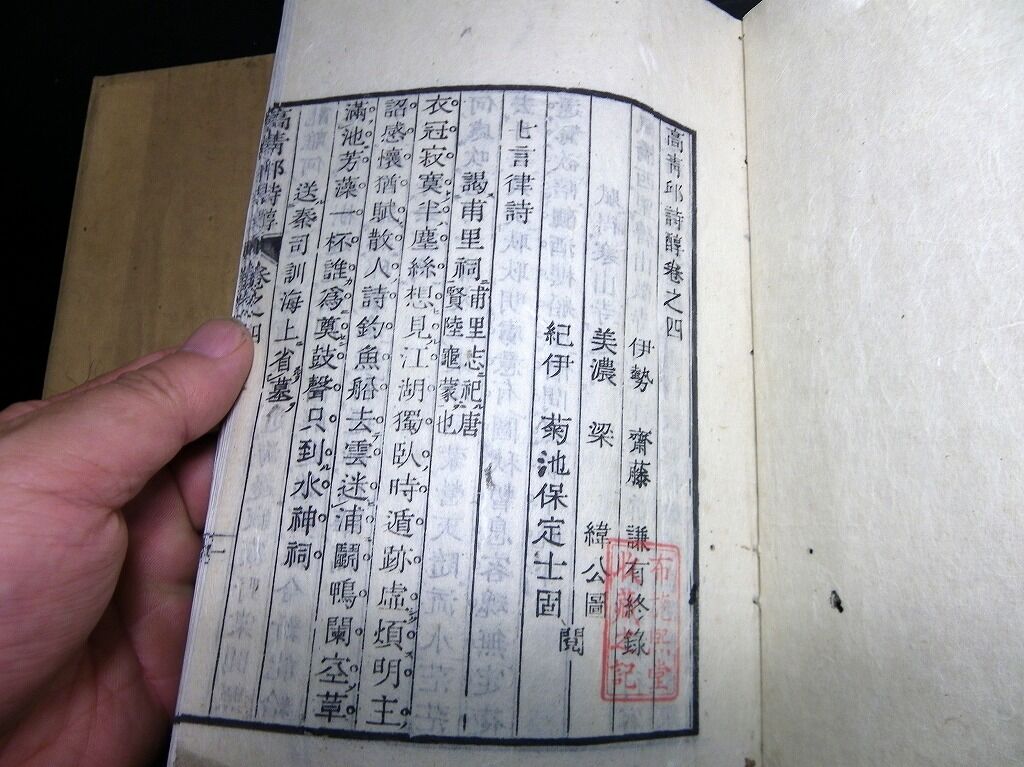 高青邱詩醇卷之四
伊勢 齋藤 謙有終錄
美濃 梁 緯公圖
紀伊 菊池保定士固 閱
七言律詩
謁甫里祠 甫里志祀唐賢陸龜蒙也
衣冠寂寞半塵絲想見江湖獨臥時遁跡虛煩明主
詔感懷猶賦散人詩釣魚船去雲迷浦鬭鴨闌空草
滿池芳藻一杯誰為奠鼓聲只到水神祠
送秦司訓海上省墓
高青邱詩醇 卷之四 一
布施熙堂
收藏之記